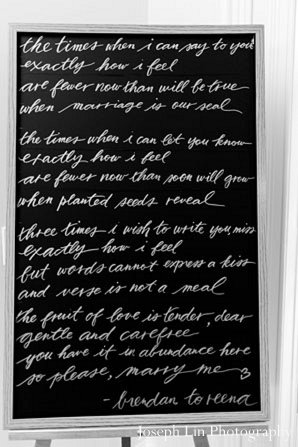 the times when i can say to you
exactly how i feel
are fewer now than will be true
when marriage is our seal
the times when i can let you know
exactly how i feel
are fewer now than soon will grow
when planted seeds reveal
three times i wish to write you, miss
exactly how i feel
but words cannot express a kiss
and verse is not a meal
the fruit of love is tender, dear
gentle and carefree
you have it in abundance here
so please, marry me
- brendan to reena
Joseph Lin Photography